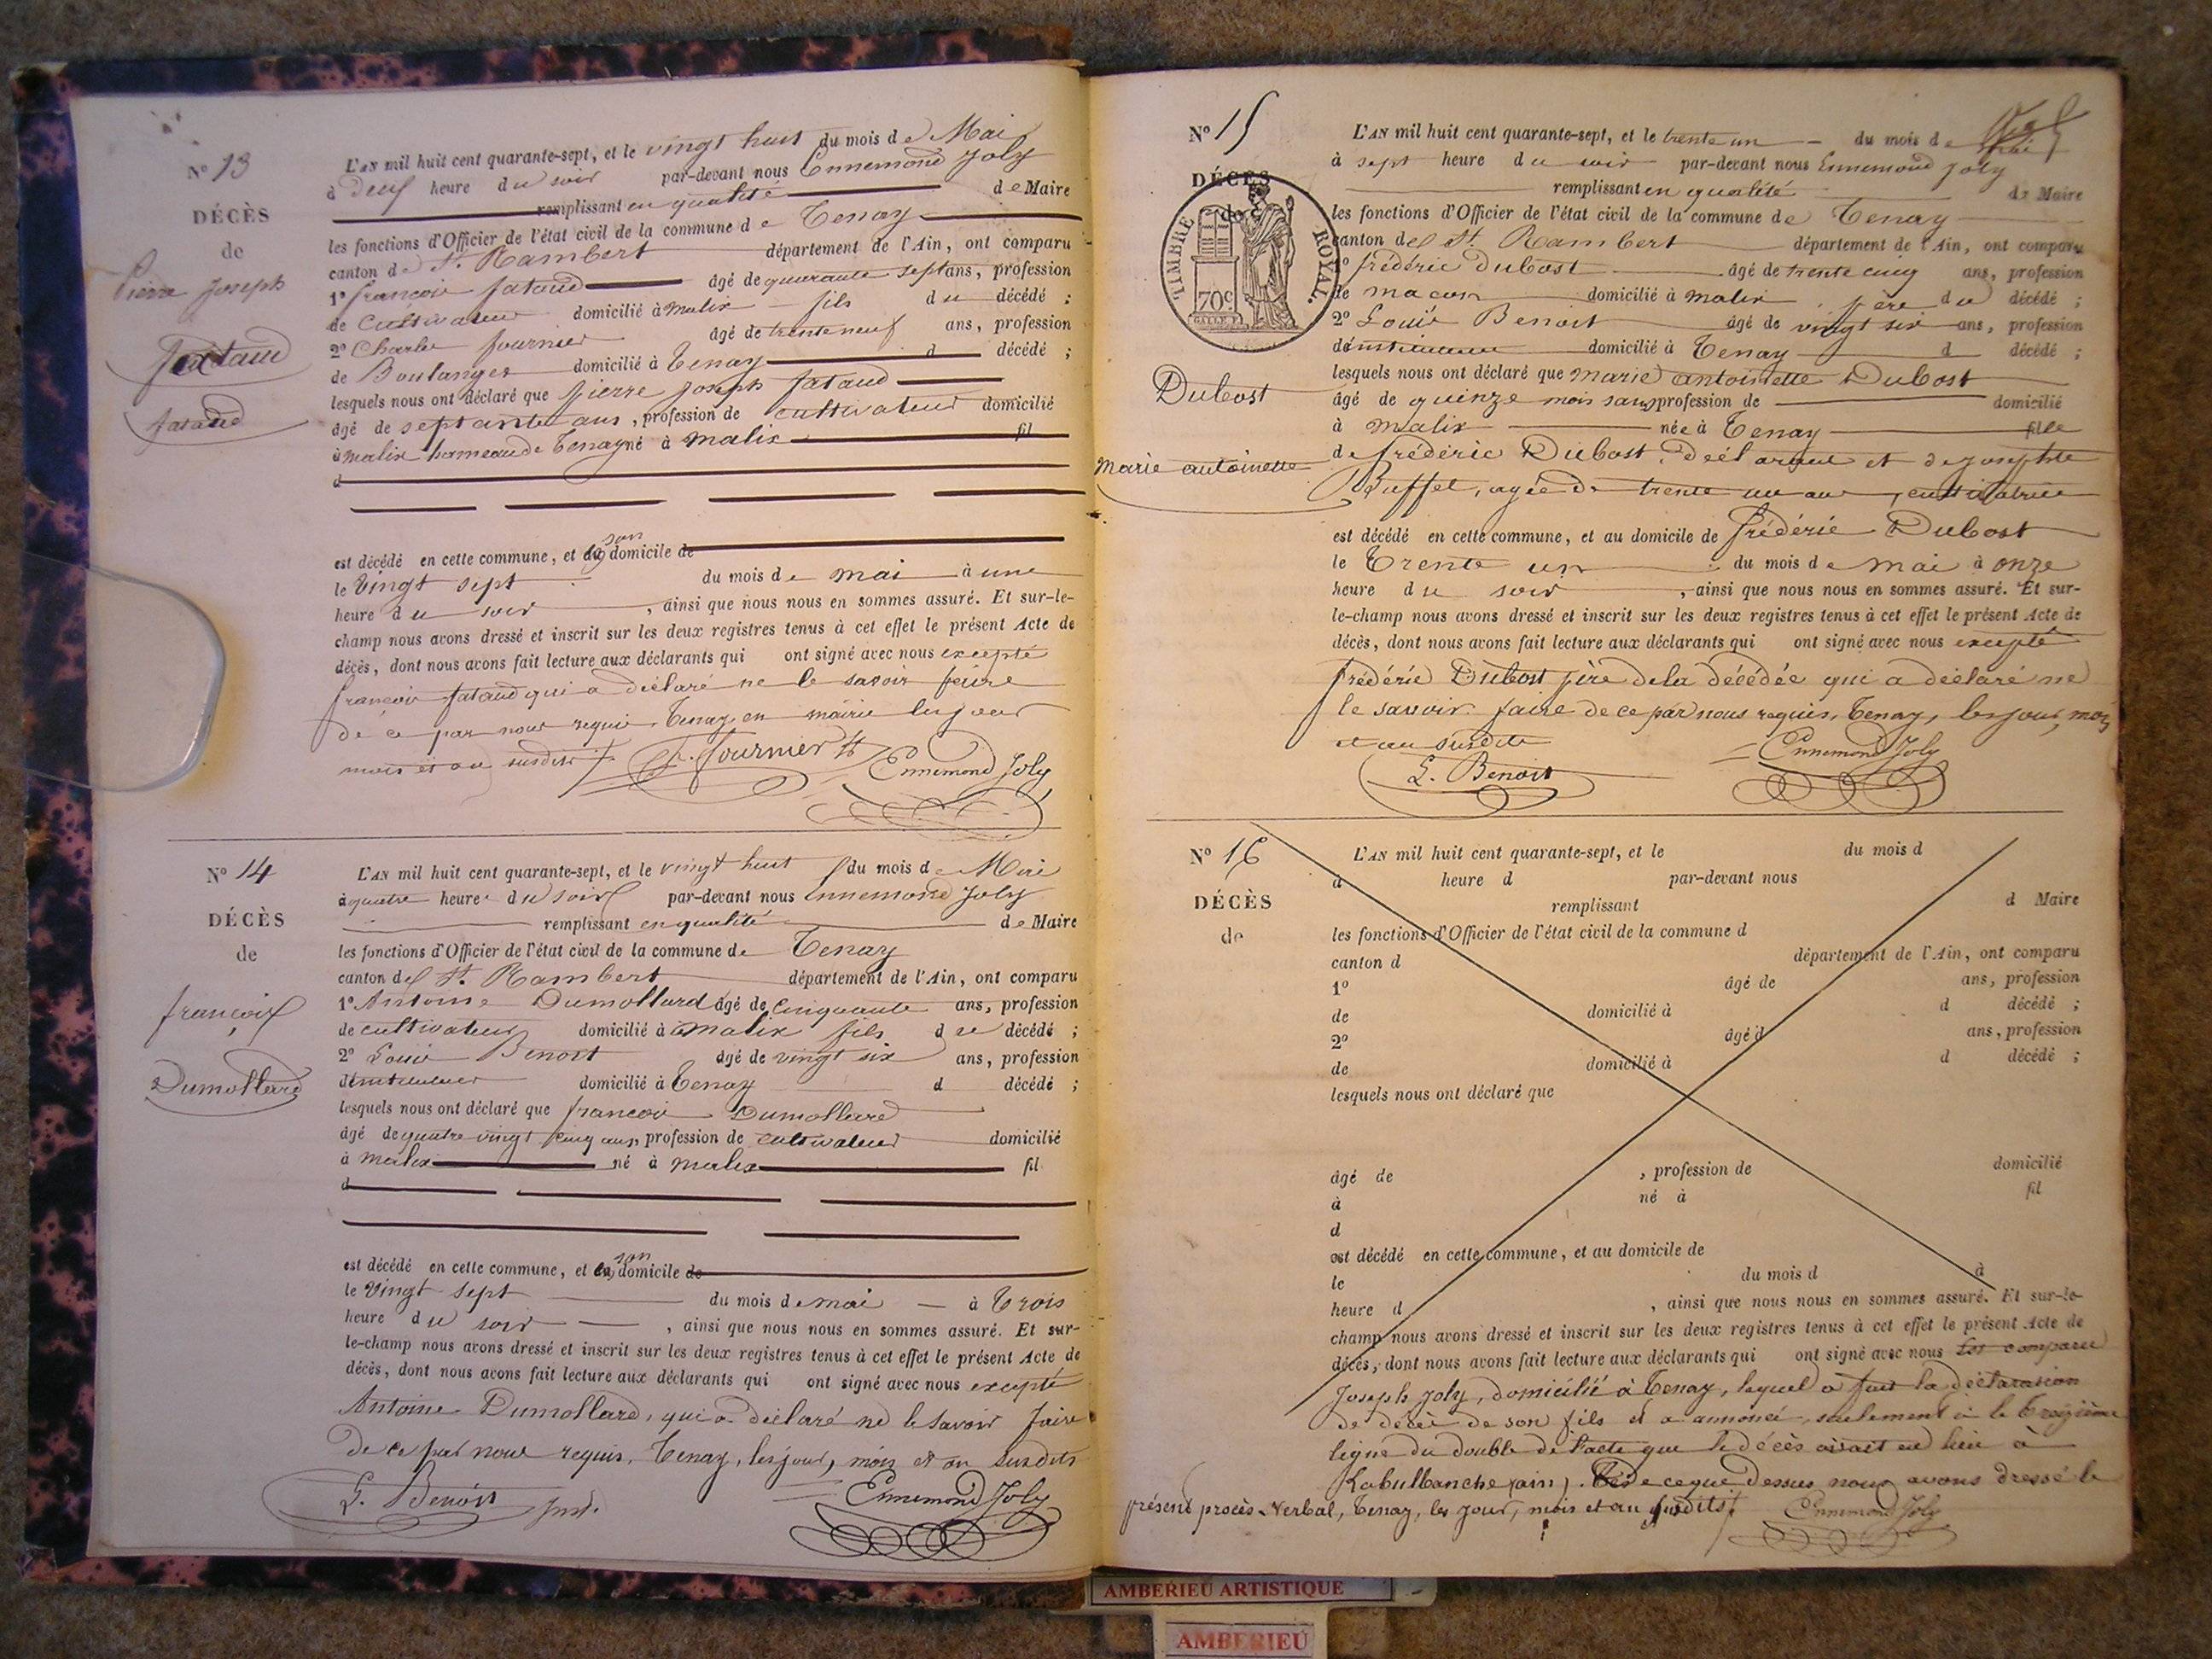 N° 13
DÉCÈS
de
Pierre Joseph
fataud
fataud
L'AN mil huit cent quarante-sept, et le vingt huit du mois de Mai
à deux heure du soir par-devant nous Ennemond Joly
remplissant en qualité de Maire
les fonctions d'Officier de l'état civil de la commune de Tenay
canton de St. Rambert département de l'Ain, ont comparu
1° françois fataud âgé de quarante sept ans, profession
de Cultivateur domicilié à malix fils du décédé ;
2° Charles fournier âgé de trente neuf ans, profession
de Boulanger domicilié à Tenay d décédé ;
lesquels nous ont déclaré que pierre joseph fataud
âgé de septante ans, profession de cultivateur domicilié
à malix hameau de Tenay né à malix fil
d
est décédé en cette commune, et son domicile de
le vingt sept du mois de mai à une
heure du soir, ainsi que nous nous en sommes assuré. Et sur-le-
champ nous avons dressé et inscrit sur les deux registres tenus à cet effet le présent Acte de
décès, dont nous avons fait lecture aux déclarants qui ont signé avec nous excepté
françois fataud qui a déclaré ne le savoir faire
de ce par nous requis Tenay en mairie les jour
mois et an susdits
fournier Ennemond Joly
N° 14
DÉCÈS
de
françois
Dumollard
L'AN mil huit cent quarante-sept, et le vingt huit du mois de Mai
à quatre heure du soir par-devant nous Ennemond Joly
remplissant en qualité de Maire
les fonctions d'Officier de l'état civil de la commune de Tenay
canton de St. Rambert département de l'Ain, ont comparu
1° Antoine Dumollard âgé de cinquante ans, profession
de cultivateur domicilié à malix fils du décédé ;
2° Louis Benoit âgé de vingt six ans, profession
d'instituteur domicilié à Tenay d décédé ;
lesquels nous ont déclaré que françois Dumollard
âgé de quatre vingt cinq ans profession de cultivateur domicilié
à malix né à malix fil
d
est décédé en cette commune, et son domicile de
le vingt sept du mois de mai à Trois
heure du soir, ainsi que nous nous en sommes assuré. Et sur-
le-champ nous avons dressé et inscrit sur les deux registres tenus à cet effet le présent Acte de
décès, dont nous avons fait lecture aux déclarants qui ont signé avec nous excepté
Antoine Dumollard, qui a déclaré ne le savoir faire
de ce par nous requis, Tenay, les jour, mois et an susdits
L. Benoit inst. Ennemond Joly
N° 15
DÉCÈS
de
TIMBRE ROYAL.
70c
Dubost
Marie antoinette
L'AN mil huit cent quarante-sept, et le trente un du mois de mai
à sept heure du soir par-devant nous Ennemond Joly
remplissant en qualité de Maire
les fonctions d'Officier de l'état civil de la commune de Tenay
canton de St. Rambert département de l'Ain, ont comparu
1° frédéric Dubost âgé de trente cinq ans, profession
de macon domicilié à malix père du décédé ;
2° Louis Benoit âgé de vingt six ans, profession
d'instituteur domicilié à Tenay d décédé ;
lesquels nous ont déclaré que marie antoinette Dubost
âgé de quinze mois sans profession de domicilié
à malix née à Tenay fille
de frédéric Dubost, déclarant et de josephte
Buffet, agée de trente un ans, cultivatrice
est décédé en cette commune, et au domicile de frédéric Dubost
le Trente un du mois de mai à onze
heure du soir, ainsi que nous nous en sommes assuré. Et sur-
le-champ nous avons dressé et inscrit sur les deux registres tenus à cet effet le présent Acte de
décès, dont nous avons fait lecture aux déclarants qui ont signé avec nous excepté
frédéric Dubost père de la décédée qui a déclaré ne
le savoir faire de ce par nous requis, Tenay, les jour, mois
et an susdits
L. Benoit Ennemond Joly
N° 16
DÉCÈS
de
L'AN mil huit cent quarante-sept, et le du mois d
à heure d par-devant nous
remplissant d Maire
les fonctions d'Officier de l'état civil de la commune d
canton d département de l'Ain, ont comparu
1° âgé de ans, profession
de domicilié à d décédé ;
2° âgé d ans, profession
de domicilié à d décédé ;
lesquels nous ont déclaré que
âgé de , profession de domicilié
à né à fil
d
est décédé en cette commune, et au domicile de
le du mois d à
heure d , ainsi que nous nous en sommes assuré. Et sur-le-
champ nous avons dressé et inscrit sur les deux registres tenus à cet effet le présent Acte de
décès, dont nous avons fait lecture aux déclarants qui ont signé avec nous Est comparu
Joseph Joly, domicilié à Tenay, lequel a fait la déclaration
de décès de son fils et a annoncé seulement à la treizième
ligne du double de l'acte que le décès avait eu lieu à
(ain). De ce que dessus nous avons dressé le
présent procès-Verbal, Tenay, les jour, mois et an susdits.
Ennemond Joly
AMBERIEU ARTISTIQUE
AMBERIEU